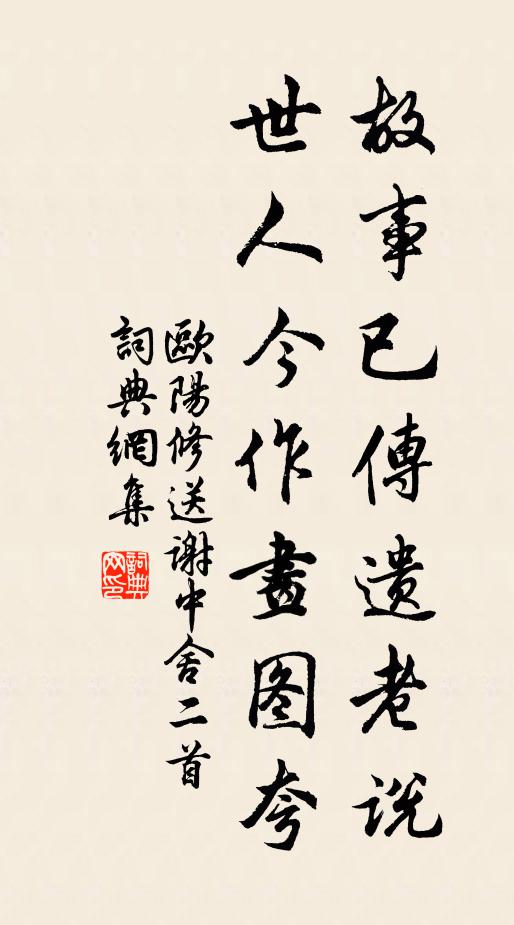 故事已傳遺老説
世人今作畫图夸
歐陽修送謝中舍二首
詞典網集
詞典网印